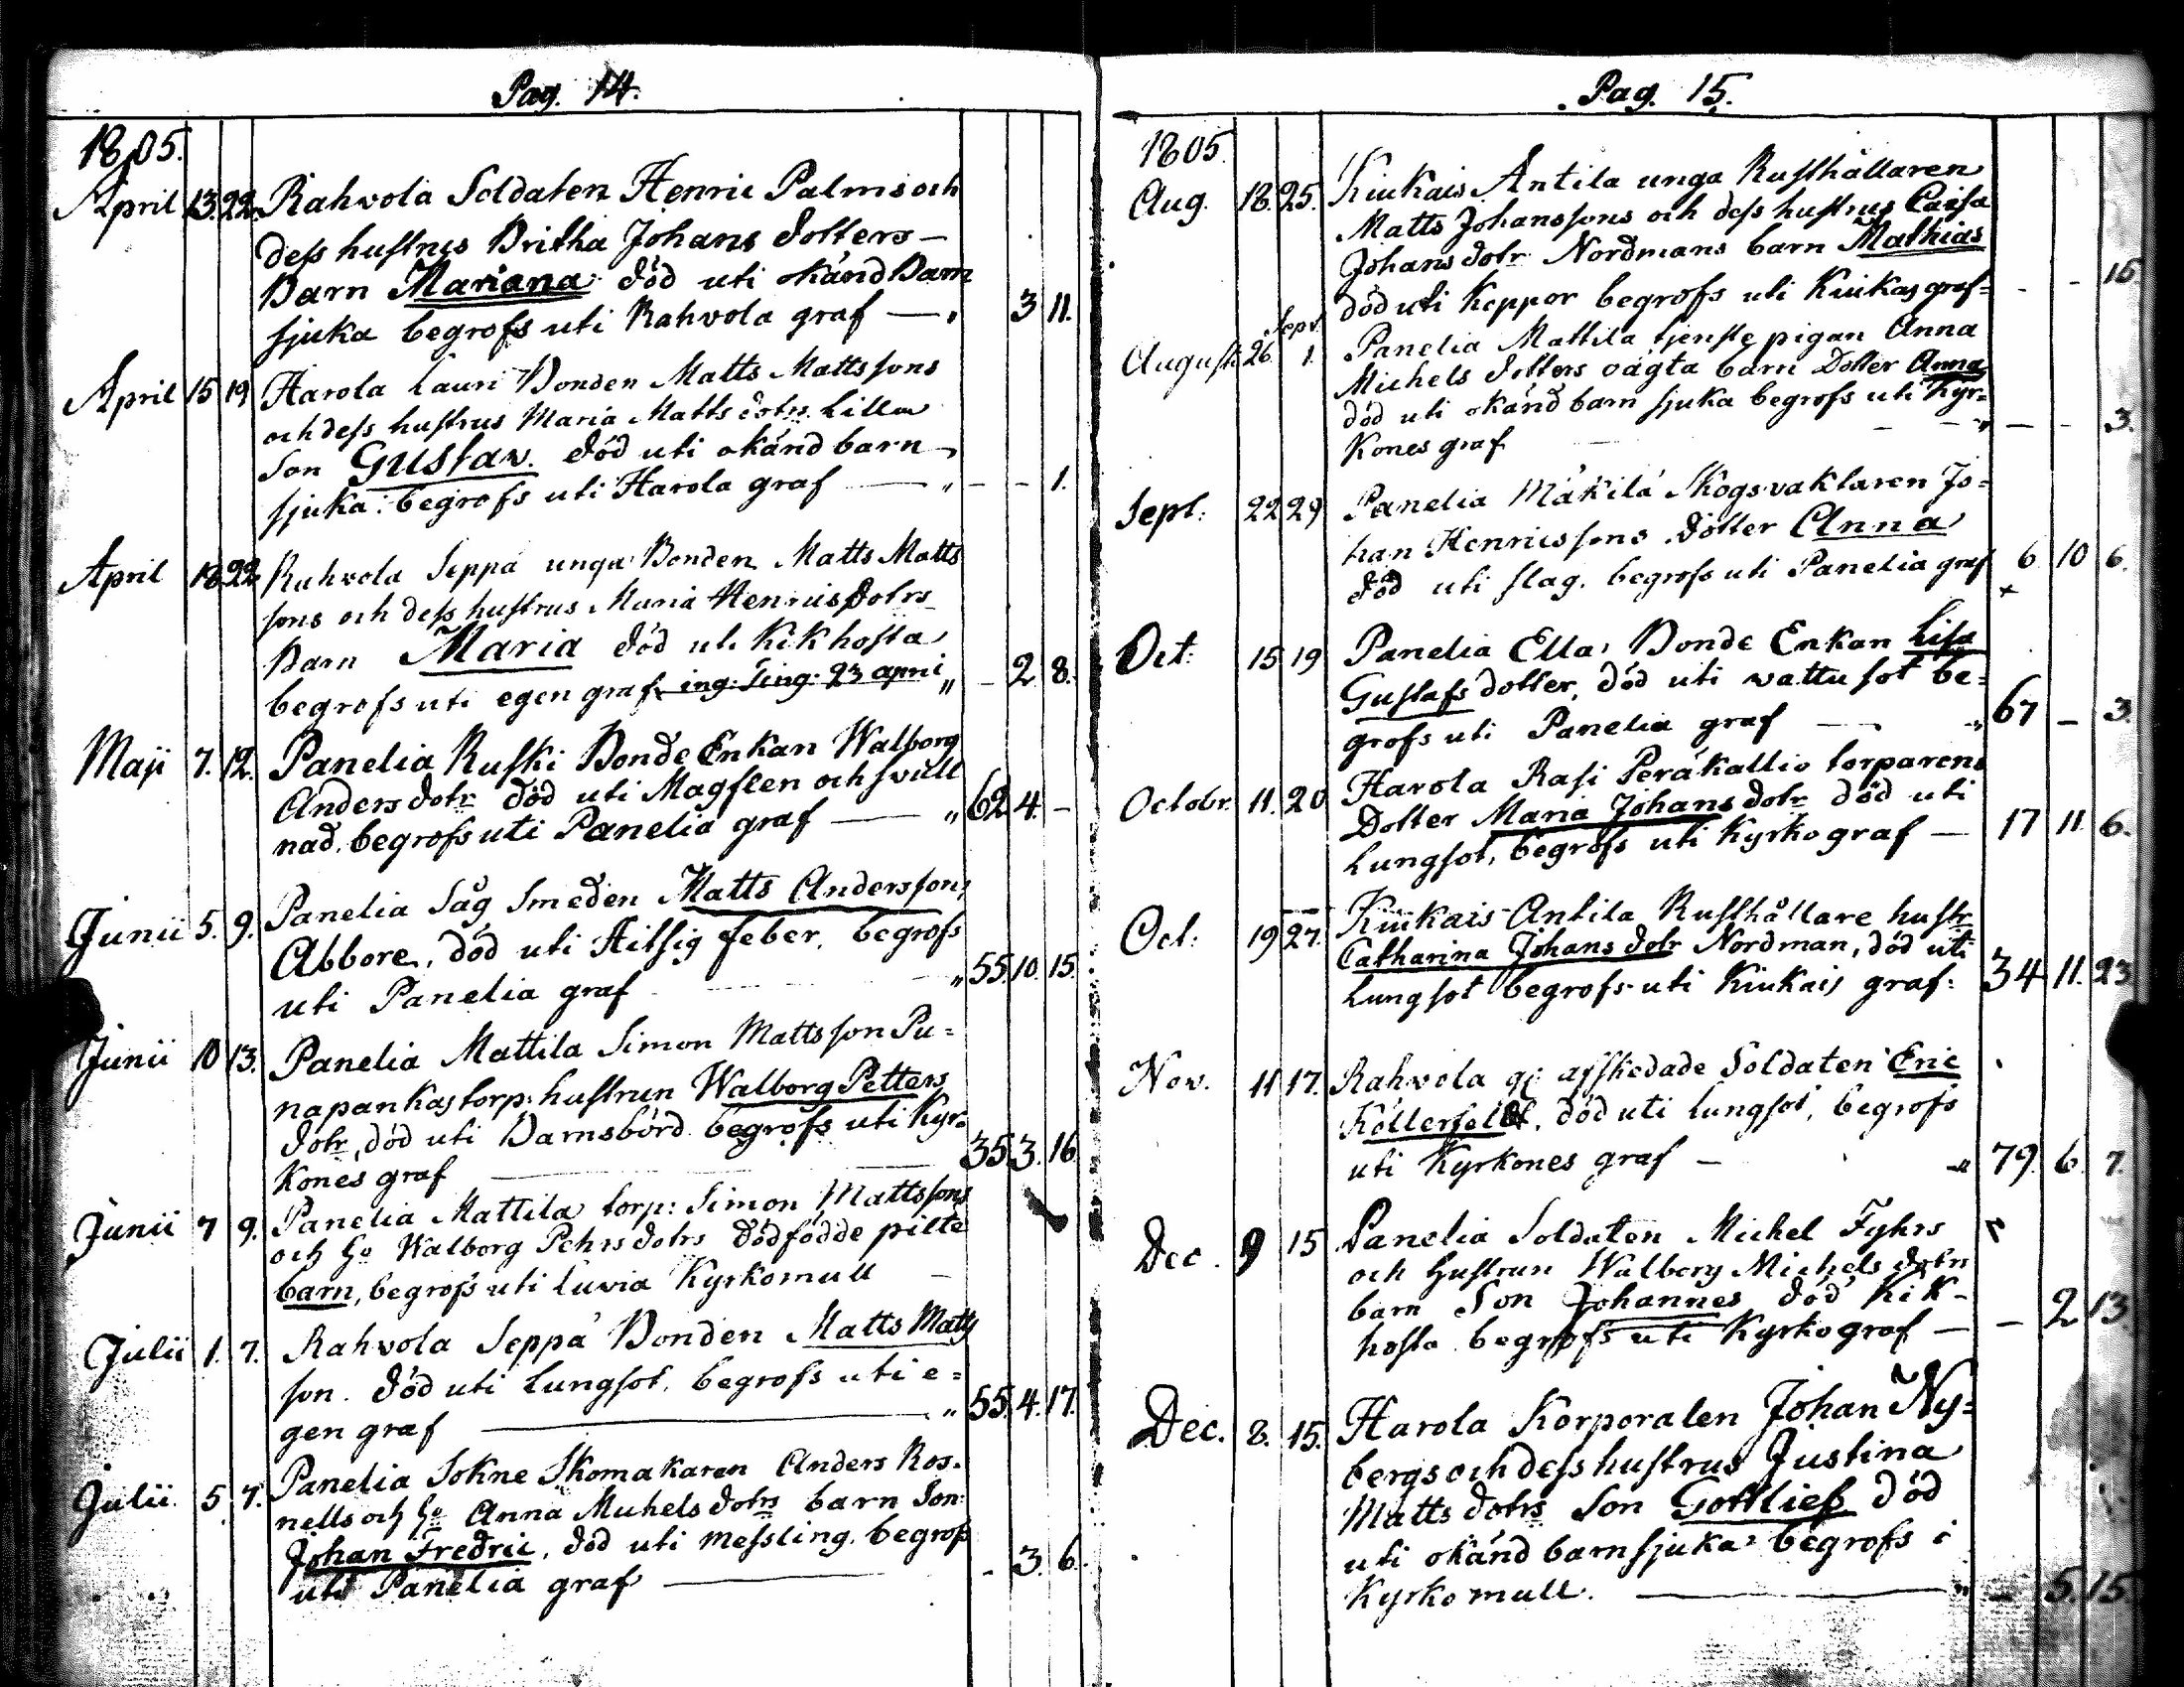 Pag. 14.
1805.
April 13. 22. Rahvola Soldaten Henric Palms och
dess hustrus Britha Johans dotters —
Barn Mariana död uti okänd Barn
sjuka begrofs uti Rahvola graf — „ 3 11.
April 15 19 Harola Lauri Bonden Matts Mattssons
och dess hustrus Maria Matts dotrs Lilla
son Gustav. död uti okänd barn-
sjuka: begrofs uti Harola graf — „ — — 1.
April 18 22 Rahvola Seppä unga Bonden Matts Matts
sons och dess hustrus Maria Henricsdotrs
Barn Maria död uti Kikhosta
begrofs uti egen graf „ — 2 8.
Maji 7. 12. Panelia Ruski Bonde Enkan Walborg
Anders dotr död uti Magsten och svull
nad. begrofs uti Panelia graf — „ 62 4. —
Junii 5. 9. Panelia Såg Smeden Matts Andersson
Abbore, död uti Hitsig feber, begrofs
uti Panelia graf „ 55. 10. 15.
Junii 10 13. Panelia Mattila Simon Mattsson Pu=
napankas torp: hustrun Walborg Petters
dotr, död uti Barnsbörd begrofs uti Kyr=
kones graf — 35 3. 16
Junii 7 9. Panelia Mattila torp: Simon Mattssons
och Walborg Pehrs dotrs dödfödde pilte
barn, begrofs uti Luvia Kyrkomull —
Julii 1. 7. Rahvola Seppä Bonden Matts Matts
son. död uti Lungsot. begrofs uti e=
gen graf — „ 55. 4. 17.
Julii 5 7. Panelia Sokne Skomakaren Anders Ros-
nells och Anna Michels dotrs barn Son
Johan Fredric, död uti messling. begrofs
uti Panelia graf — - 3. 6.
Pag. 15.
1805.
Aug. 18. 25. Kiukais Antila unga Rusthållaren
Matts Johanssons och dess hustrus Caisa
Johans dotr Nordmans barn Mathias
död uti Koppor begrofs uti Kiukas graf= - - 15
Sept.
Augusti 26. 1. Panelia Mattila tjenste pigan Anna
Michels dotters oägta barn Dotter Anna
död uti okänd barn sjuka begrofs uti Kyr=
kones graf — — — 3.
Sept: 22 29 Panelia Mäkilä Skogsvaktaren Jo=
han Henricssons dotter Anna
död uti slag. begrofs uti Panelia graf 6 10 6.
Oct: 15 19 Panelia Ella, Bonde Enkan Lisa
Gustafs dotter, död uti vattusot be=
grofs uti Panelia graf — „ 67 — 3.
Octobr. 11. 20 Harola Rasi Peräkallio torparens
Dotter Maria Johans dotr död uti
Lungsot, begrofs uti Kyrko graf — 17 11. 6.
Oct: 19 27. Kiukais Antila Rusthållare hustr
Catharina Johans dotr Nordman, död uti
Lungsot begrofs uti Kiukais graf: 34 11. 23
Nov. 11 17. Rahvola afskedade Soldaten Eric
död uti Lungsot, begrofs
uti Kyrkones graf — „ 79. 6. 7.
Dec. 9 15 Panelia Soldaten Michel Fyhrs
och hustrun Walborg Michels dotrs
barn Son Johannes död Kik-
hosta begrofs uti Kyrko graf — — 2 13.
Dec. 8. 15. Harola Korporalen Johan Ny=
bergs och dess hustrus Justina
Matts dotrs Son Gottlieb död
uti okänd barnsjuka begrofs i
Kyrko mull. — „ — 5. 15.